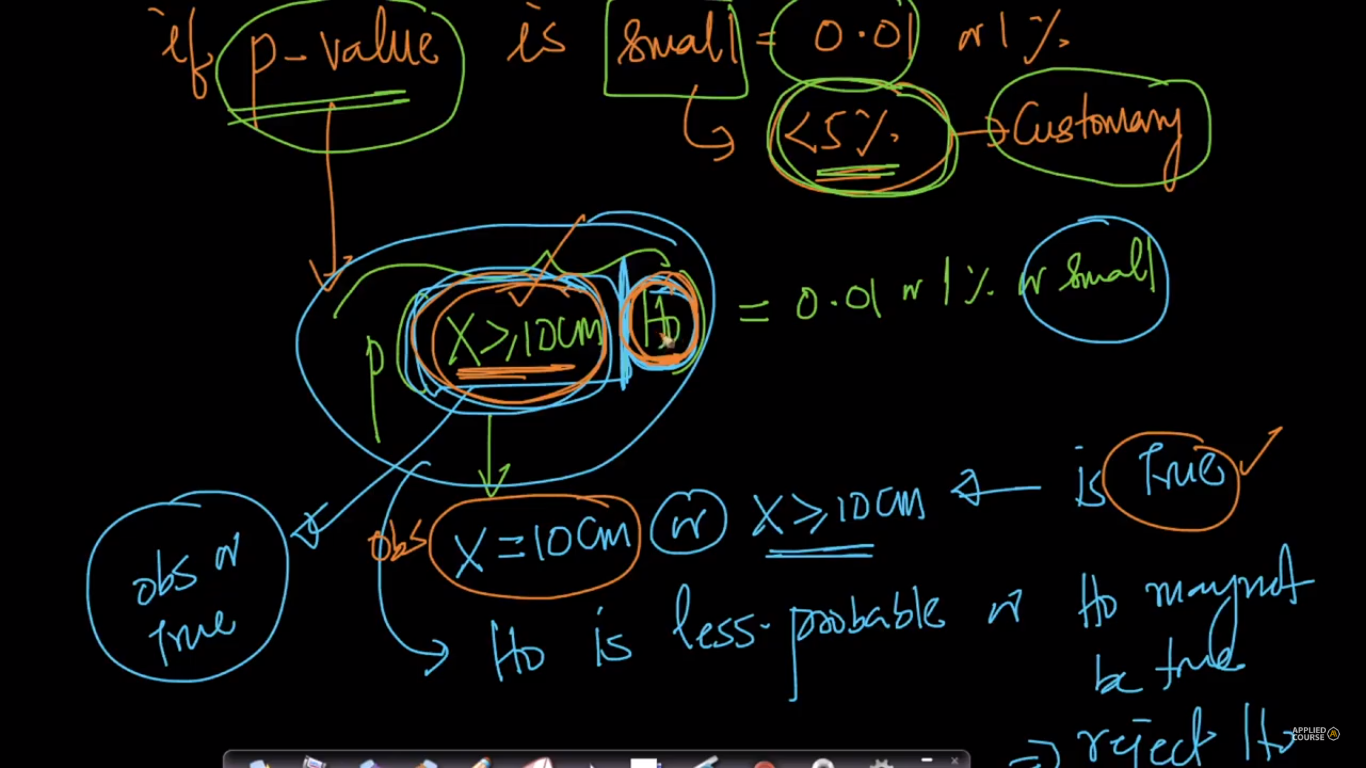 if p-value is small = 0.01 or 1%
<5% → Customary
P(X≥10cm | H0) = 0.01 or 1% or small
obs X=10cm or X≥10cm ← is True ✓
obs or
True
H0 is less-probable or H0 maynot
be true
⇒ reject H0
APPLIED
COURSE